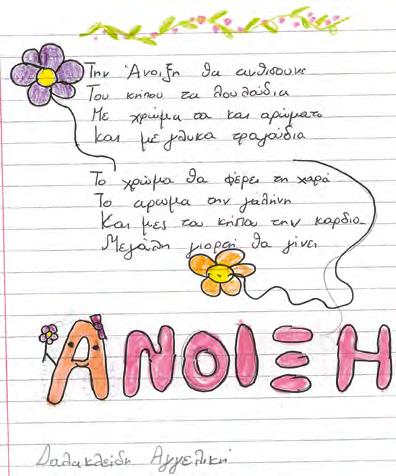 Την Άνοιξη θα ανθισουνε
Του κηπου τα λουλούδια
Με χρώμα τα και αρώματα
Και με γλυκα τραγούδια
Το χρώμα θα φέρει τη χαρά
Το αρωμα την γαλήνη
Και μες του κήπου την καρδια
Μεγάλη γιορτή θα γίνει
ΑΝΟΙΞΗ
Δαλακλείδη Αγγελική